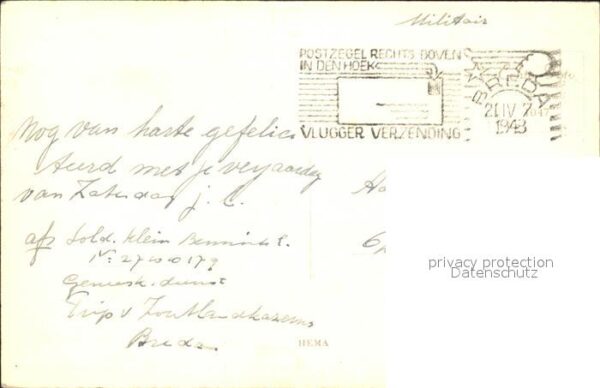 Militair
POSTZEGEL RECHTS BOVEN
IN DEN HOEK
VLUGGER VERZENDING
BREDA
21 IV
1948
Nog van harte gefelici
teerd met je verjaardag
van Zaterdag j.l.
afz Sold. Klein
Geneesk. dienst
Trip v Zoutlandkazerne
Breda
HEMA
privacy protection
Datenschutz